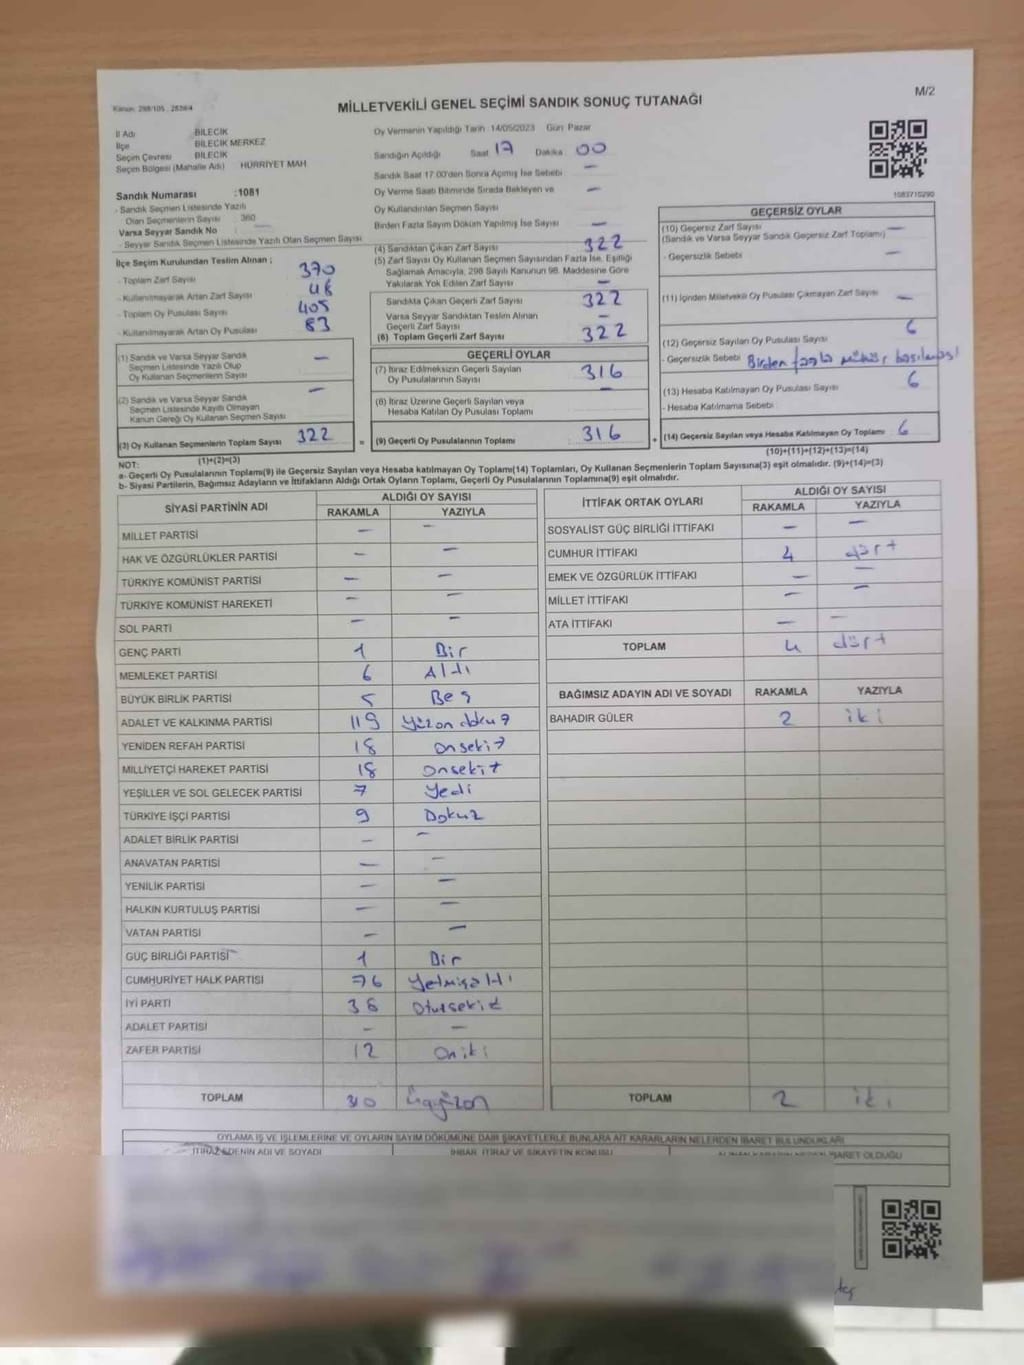 Kanun: 298/105 , 2839/4
MİLLETVEKİLİ GENEL SEÇİMİ SANDIK SONUÇ TUTANAĞI
M/2
İl Adı BİLECİK
İlçe BİLECİK MERKEZ
Seçim Çevresi BİLECİK
Seçim Bölgesi (Mahalle Adı) HÜRRİYET MAH
Sandık Numarası :1081
- Sandık Seçmen Listesinde Yazılı
Olan Seçmenlerin Sayısı 360
Varsa Seyyar Sandık No
- Seyyar Sandık Seçmen Listesinde Yazılı Olan Seçmen Sayısı
İlçe Seçim Kurulundan Teslim Alınan ;
- Toplam Zarf Sayısı 370
- Kullanılmayarak Artan Zarf Sayısı 48
- Toplam Oy Pusulası Sayısı 405
- Kullanılmayarak Artan Oy Pusulası 83
(1) Sandık ve Varsa Seyyar Sandık
Seçmen Listesinde Yazılı Olup
Oy Kullanan Seçmenlerin Sayısı —
(2) Sandık ve Varsa Seyyar Sandık
Seçmen Listesinde Kayıtlı Olmayan
Kanun Gereği Oy Kullanan Seçmen Sayısı —
(3) Oy Kullanan Seçmenlerin Toplam Sayısı 322 =
(1)+(2)=(3)
Oy Vermenin Yapıldığı Tarih 14/05/2023 Gün Pazar
Sandığın Açıldığı Saat 17 Dakika 00
Sandık Saat 17:00'den Sonra Açılmış İse Sebebi —
Oy Verme Saati Bitiminde Sırada Bekleyen ve —
Oy Kullandırılan Seçmen Sayısı
Birden Fazla Sayım Döküm Yapılmış İse Sayısı —
(4) Sandıktan Çıkan Zarf Sayısı 322
(5) Zarf Sayısı Oy Kullanan Seçmen Sayısından Fazla İse, Eşitliği
Sağlamak Amacıyla, 298 Sayılı Kanunun 98. Maddesine Göre
Yakılarak Yok Edilen Zarf Sayısı —
Sandıkta Çıkan Geçerli Zarf Sayısı 322
Varsa Seyyar Sandıktan Teslim Alınan
Geçerli Zarf Sayısı —
(6) Toplam Geçerli Zarf Sayısı 322
GEÇERLİ OYLAR
(7) İtiraz Edilmeksizin Geçerli Sayılan
Oy Pusulalarının Sayısı 316
(8) İtiraz Üzerine Geçerli Sayılan veya
Hesaba Katılan Oy Pusulası Toplamı —
(9) Geçerli Oy Pusulalarının Toplamı 316 +
1083710290
GEÇERSİZ OYLAR
(10) Geçersiz Zarf Sayısı —
(Sandık ve Varsa Seyyar Sandık Geçersiz Zarf Toplamı)
- Geçersizlik Sebebi —
(11) İçinden Milletvekili Oy Pusulası Çıkmayan Zarf Sayısı —
(12) Geçersiz Sayılan Oy Pusulası Sayısı 6
- Geçersizlik Sebebi Birden fazla mühür basılması
(13) Hesaba Katılmayan Oy Pusulası Sayısı 6
- Hesaba Katılmama Sebebi
(14) Geçersiz Sayılan veya Hesaba Katılmayan Oy Toplamı 6
(10)+(11)+(12)+(13)=(14)
NOT:
a- Geçerli Oy Pusulalarının Toplamı(9) ile Geçersiz Sayılan veya Hesaba katılmayan Oy Toplamı(14) Toplamları, Oy Kullanan Seçmenlerin Toplam Sayısına(3) eşit olmalıdır. (9)+(14)=(3)
b- Siyasi Partilerin, Bağımsız Adayların ve İttifakların Aldığı Ortak Oyların Toplamı, Geçerli Oy Pusulalarının Toplamına(9) eşit olmalıdır.
SİYASİ PARTİNİN ADI ALDIĞI OY SAYISI
RAKAMLA YAZIYLA
MİLLET PARTİSİ — —
HAK VE ÖZGÜRLÜKLER PARTİSİ — —
TÜRKİYE KOMÜNİST PARTİSİ — —
TÜRKİYE KOMÜNİST HAREKETİ — —
SOL PARTİ — —
GENÇ PARTİ 1 Bir
MEMLEKET PARTİSİ 6 Altı
BÜYÜK BİRLİK PARTİSİ 5 Beş
ADALET VE KALKINMA PARTİSİ 119 Yüzondokuz
YENİDEN REFAH PARTİSİ 18 onsekiz
MİLLİYETÇİ HAREKET PARTİSİ 18 onsekiz
YEŞİLLER VE SOL GELECEK PARTİSİ 7 Yedi
TÜRKİYE İŞÇİ PARTİSİ 9 Dokuz
ADALET BİRLİK PARTİSİ — —
ANAVATAN PARTİSİ — —
YENİLİK PARTİSİ — —
HALKIN KURTULUŞ PARTİSİ — —
VATAN PARTİSİ — —
GÜÇ BİRLİĞİ PARTİSİ 1 Bir
CUMHURİYET HALK PARTİSİ 76 Yetmişaltı
İYİ PARTİ 38 Otuzsekiz
ADALET PARTİSİ — —
ZAFER PARTİSİ 12 Oniki
TOPLAM 310 Üçyüzon
İTTİFAK ORTAK OYLARI ALDIĞI OY SAYISI
RAKAMLA YAZIYLA
SOSYALİST GÜÇ BİRLİĞİ İTTİFAKI — —
CUMHUR İTTİFAKI 4 dört
EMEK VE ÖZGÜRLÜK İTTİFAKI — —
MİLLET İTTİFAKI — —
ATA İTTİFAKI — —
TOPLAM 4 dört
BAĞIMSIZ ADAYIN ADI VE SOYADI RAKAMLA YAZIYLA
BAHADIR GÜLER 2 iki
TOPLAM 2 iki
OYLAMA İŞ VE İŞLEMLERİNE VE OYLARIN SAYIM DÖKÜMÜNE DAİR ŞİKAYETLERLE BUNLARA AİT KARARLARIN NELERDEN İBARET BULUNDUKLARI
İTİRAZ EDENİN ADI VE SOYADI İHBAR, İTİRAZ VE ŞİKAYETİN KONUSU ALINAN KARARIN NEDEN İBARET OLDUĞU